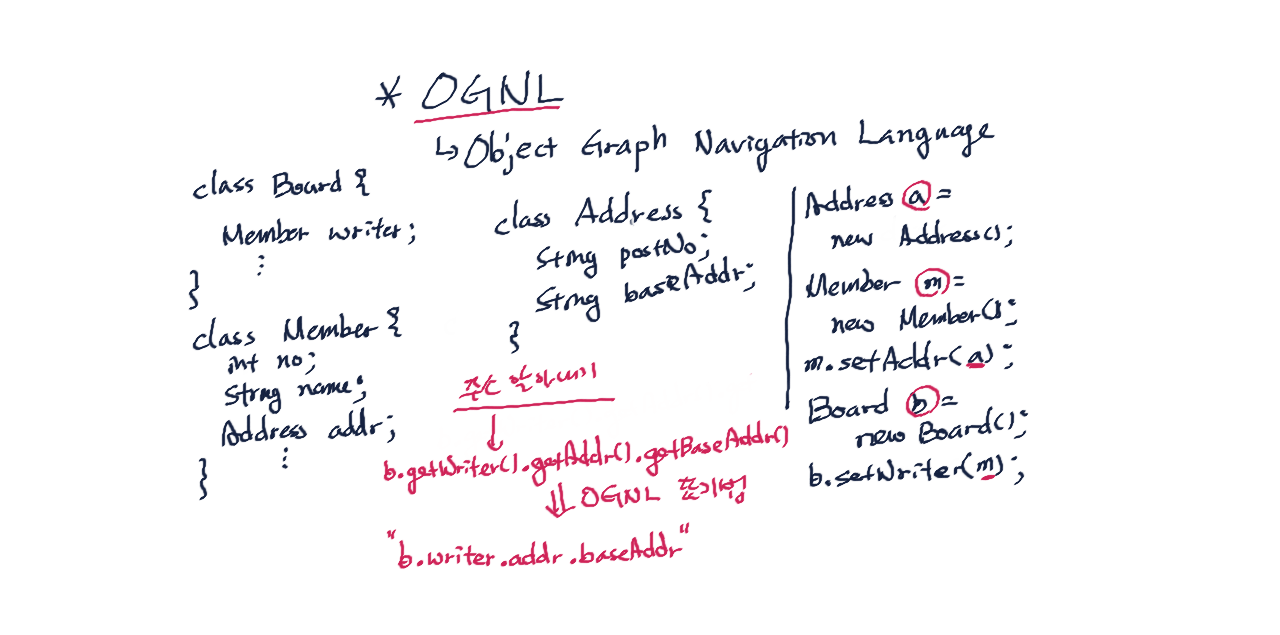 * OGNL
↳ Object Graph Navigation Language
class Board {
Member writer;
⋮
}
class Member {
int no;
String name;
Address addr;
⋮
}
class Address {
String postNo;
String baseAddr;
}
주소 알아내기
↓
b.getWriter().getAddr().getBaseAddr()
⇓ OGNL 표기법
"b.writer.addr.baseAddr"
Address a =
new Address();
Member m =
new Member();
m.setAddr(a);
Board b =
new Board();
b.setWriter(m);